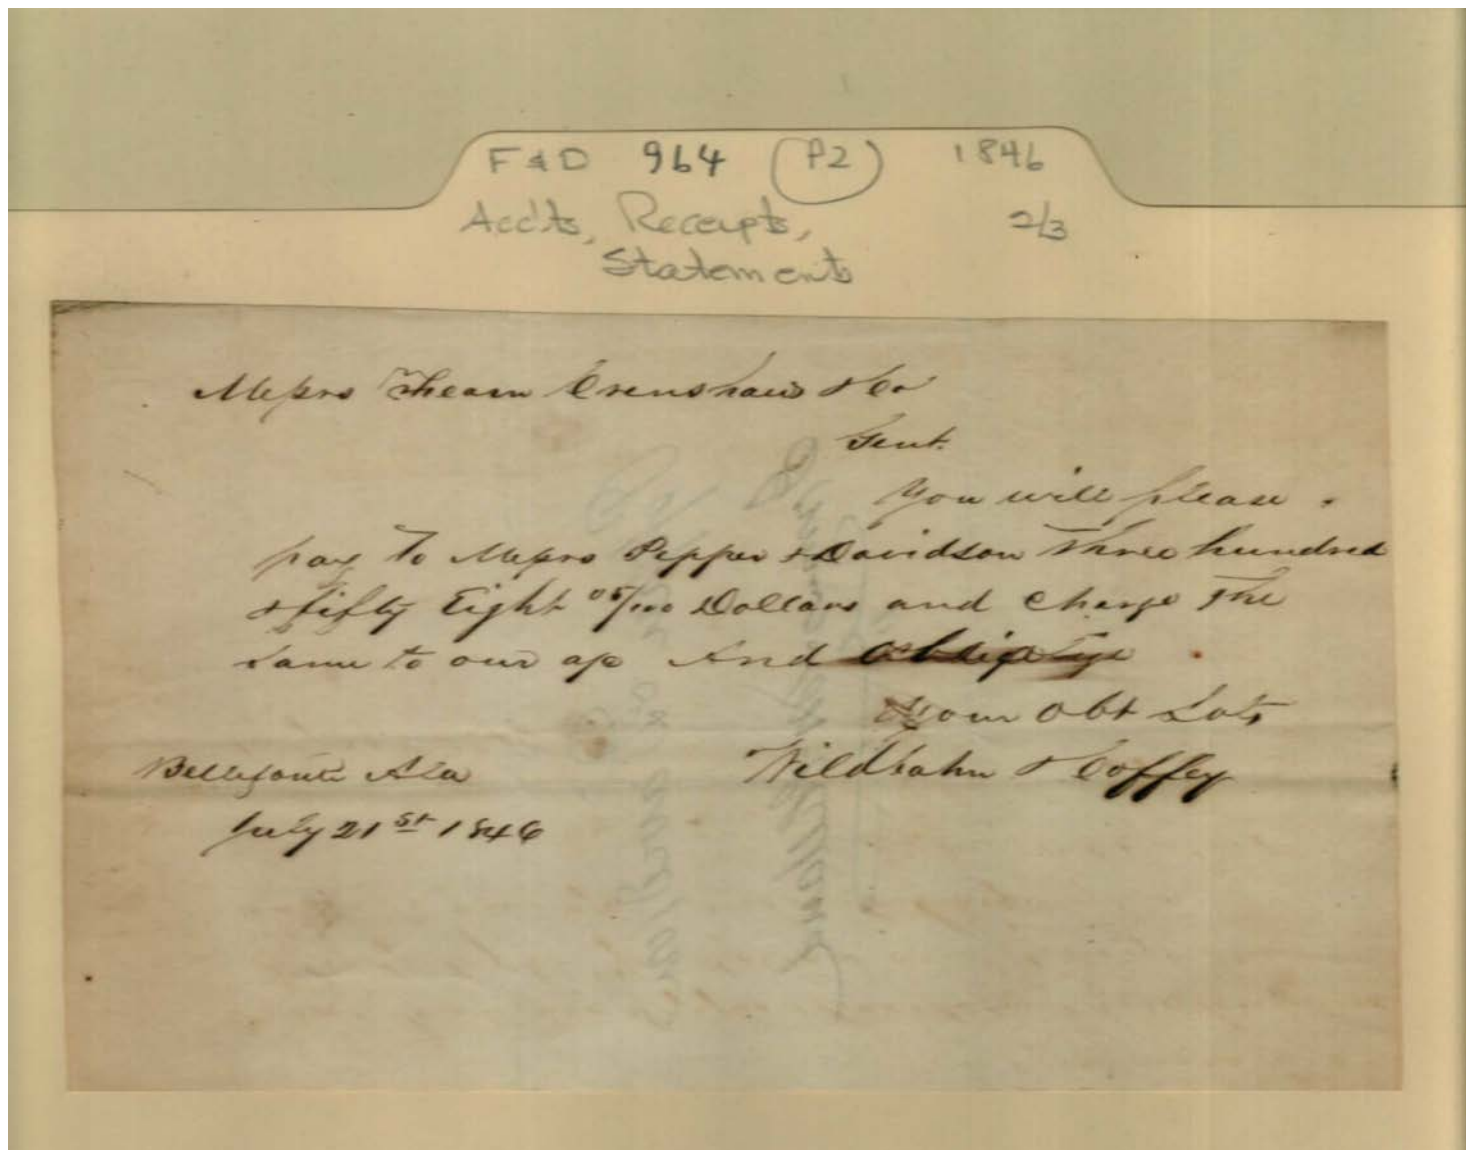 F & D 964 (P2) 1846
Acc'ts, Receipts, 2/3
Statements
Messrs Hearn Crenshaw & Co
Gent.
You will please
pay to Messrs Pepper & Davidson Three hundred
& fifty Eight 05/100 Dollars and charge The
same to our a/c And
Your Obt Svts
Wildbahn & Coffey
Bellefonte Ala
July 21st 1846